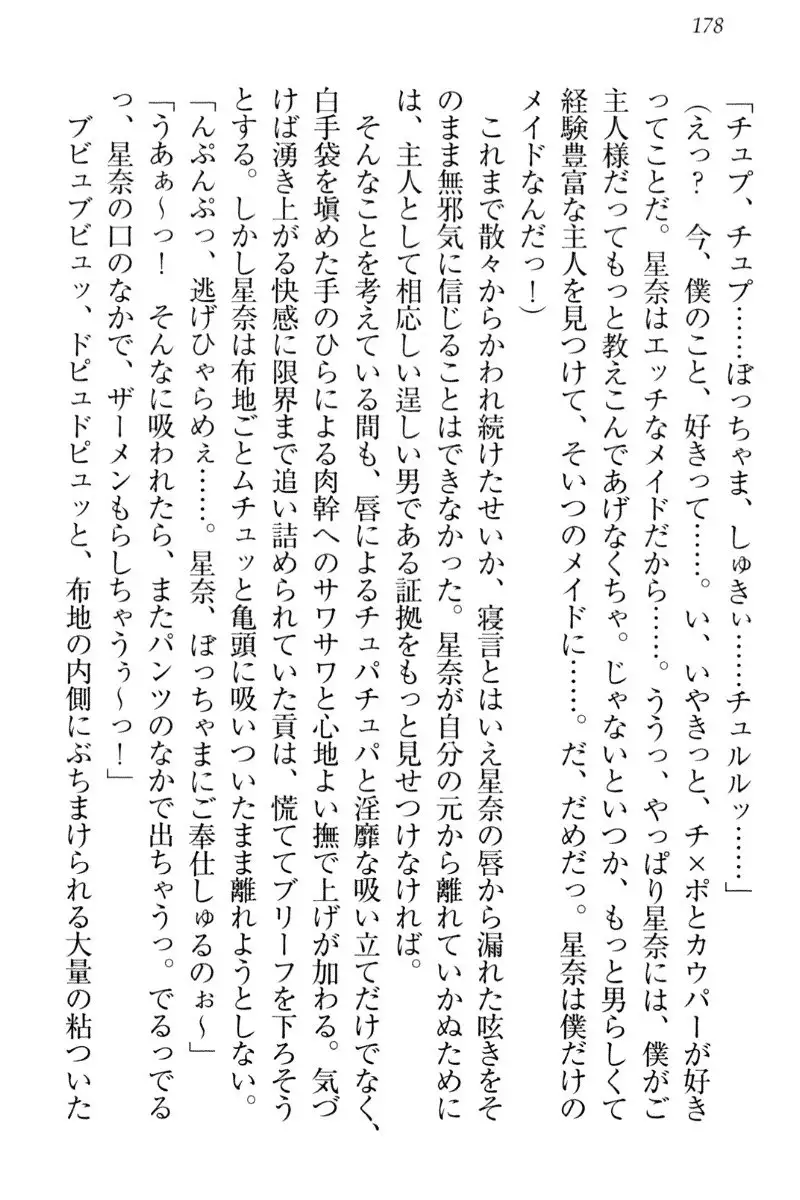 178
「チュプ、チュプ……ぼっちゃま、しゅきぃ……チュルルッ……」
（えっ？　今、僕のこと、好きって……。い、いやきっと、チ×ポとカウパーが好き
ってことだ。星奈はエッチなメイドだから……。ううっ、やっぱり星奈には、僕がご
主人様だってもっと教えこんであげなくちゃ。じゃないといつか、もっと男らしくて
経験豊富な主人を見つけて、そいつのメイドに……。だ、だめだっ。星奈は僕だけの
メイドなんだっ！）
これまで散々からかわれ続けたせいか、寝言とはいえ星奈の唇から漏れた呟きをそ
のまま無邪気に信じることはできなかった。星奈が自分の元から離れていかぬために
は、主人として相応しい逞しい男である証拠をもっと見せつけなければ。
そんなことを考えている間も、唇によるチュパチュパと淫靡な吸い立てだけでなく、
白手袋を填めた手のひらによる肉幹へのサワサワと心地よい撫で上げが加わる。気づ
けば湧き上がる快感に限界まで追い詰められていた貢は、慌ててブリーフを下ろそう
とする。しかし星奈は布地ごとムチュッと亀頭に吸いついたまま離れようとしない。
「んぷんぷっ、逃げひゃらめぇ……。星奈、ぼっちゃまにご奉仕しゅるのぉ～」
「うあぁ～っ！　そんなに吸われたら、またパンツのなかで出ちゃうっ。でるってる
っ、星奈の口のなかで、ザーメンもらしちゃうぅ～っ！」
ブビュブビュッ、ドピュドピュッと、布地の内側にぶちまけられる大量の粘ついた